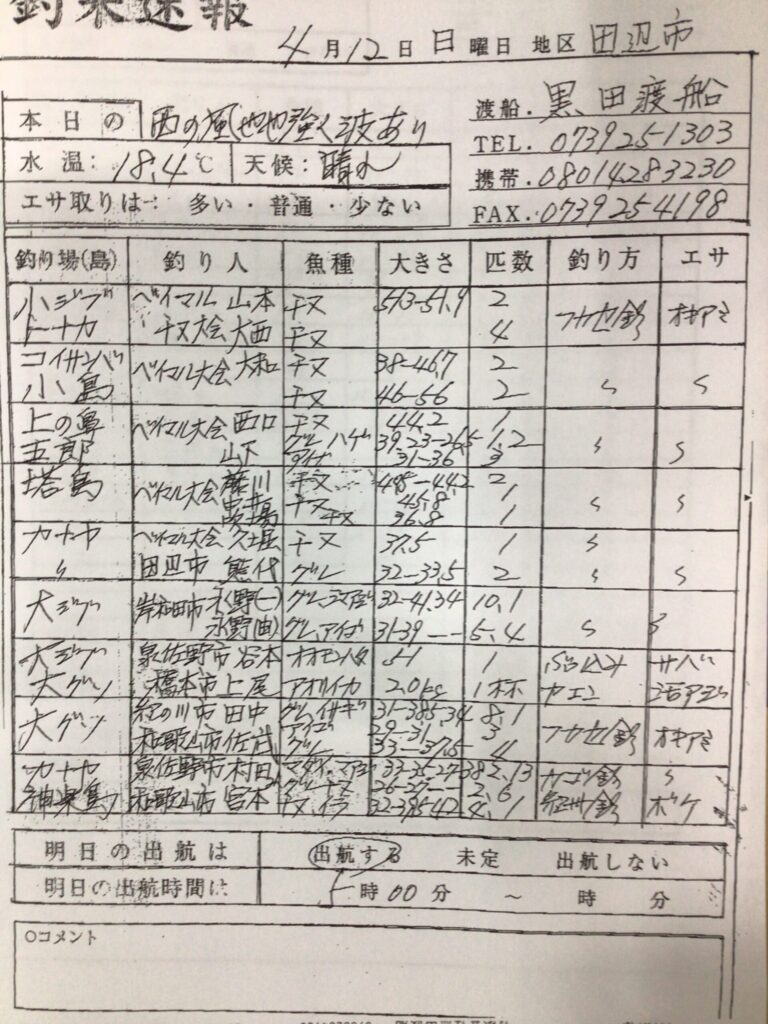 釣果速報
4月12日 日曜日 地区 田辺市
本日の 西の風やや強く波あり
水温: 18.4℃ 天候: 晴れ
エサ取りは: 多い・普通・少ない
渡船. 黒田渡船
TEL. 0739251303
携帯. 08014283230
FAX. 0739254198
釣り場(島) 釣り人 魚種 大きさ 匹数 釣り方 エサ
小ジブ ベイマル 山本 チヌ 51.3-51.9 2
トーナカ チヌ大会 大西 チヌ 4 フカセ釣 オキアミ
コイサンバ ベイマル大会 大和 チヌ 38-46.7 2
小島 チヌ 46-56 2 〃 〃
上の鼻 ベイマル大会 西口 チヌ 44.2 1
五郎 山下 グレ ハゲ 39.23-26.5 1.2 〃 〃
アイゴ 31-36 3
塔島 ベイマル大会 藤川 チヌ 44.2 2
チヌ 45.8 1 〃 〃
チヌ 36.8 1
カナヤ ベイマル大会 久堀 チヌ 37.5 1 〃
〃 田辺市 熊代 グレ 32-33.5 2 〃 〃
大ジブ 岸和田市 永野(一) グレ、シマアジ 32-41.34 10.1
永野(由) グレ、アイゴ 31-39 -- 5.4 〃 〃
大ジブ 泉佐野市 谷本 オオモンハタ 51 1 サバ
大グソ 橋本市 上尾 アオリイカ 2.0kg 1杯 ヤエン 活アジ
大グソ 紀の川市 田中 グレ、イサギ 31-38.5.34 8.1
アイゴ 29-31 3 フカセ釣 オキアミ
和歌山市 佐茂 グレ 33-37.5 4
カナヤ 泉佐野市 村田 マダイ、マアジ 33-35-27-38 2.13 カゴ釣 〃
グレ チヌ 26-27-- 2.6
神楽島 和歌山市 宮本 チヌ、イラ 32-39.5 42 4.1 紀州釣 ボケ
明日の出航は 出航する 未定 出航しない
明日の出航時間は 5時00分 ～ 時 分
○コメント